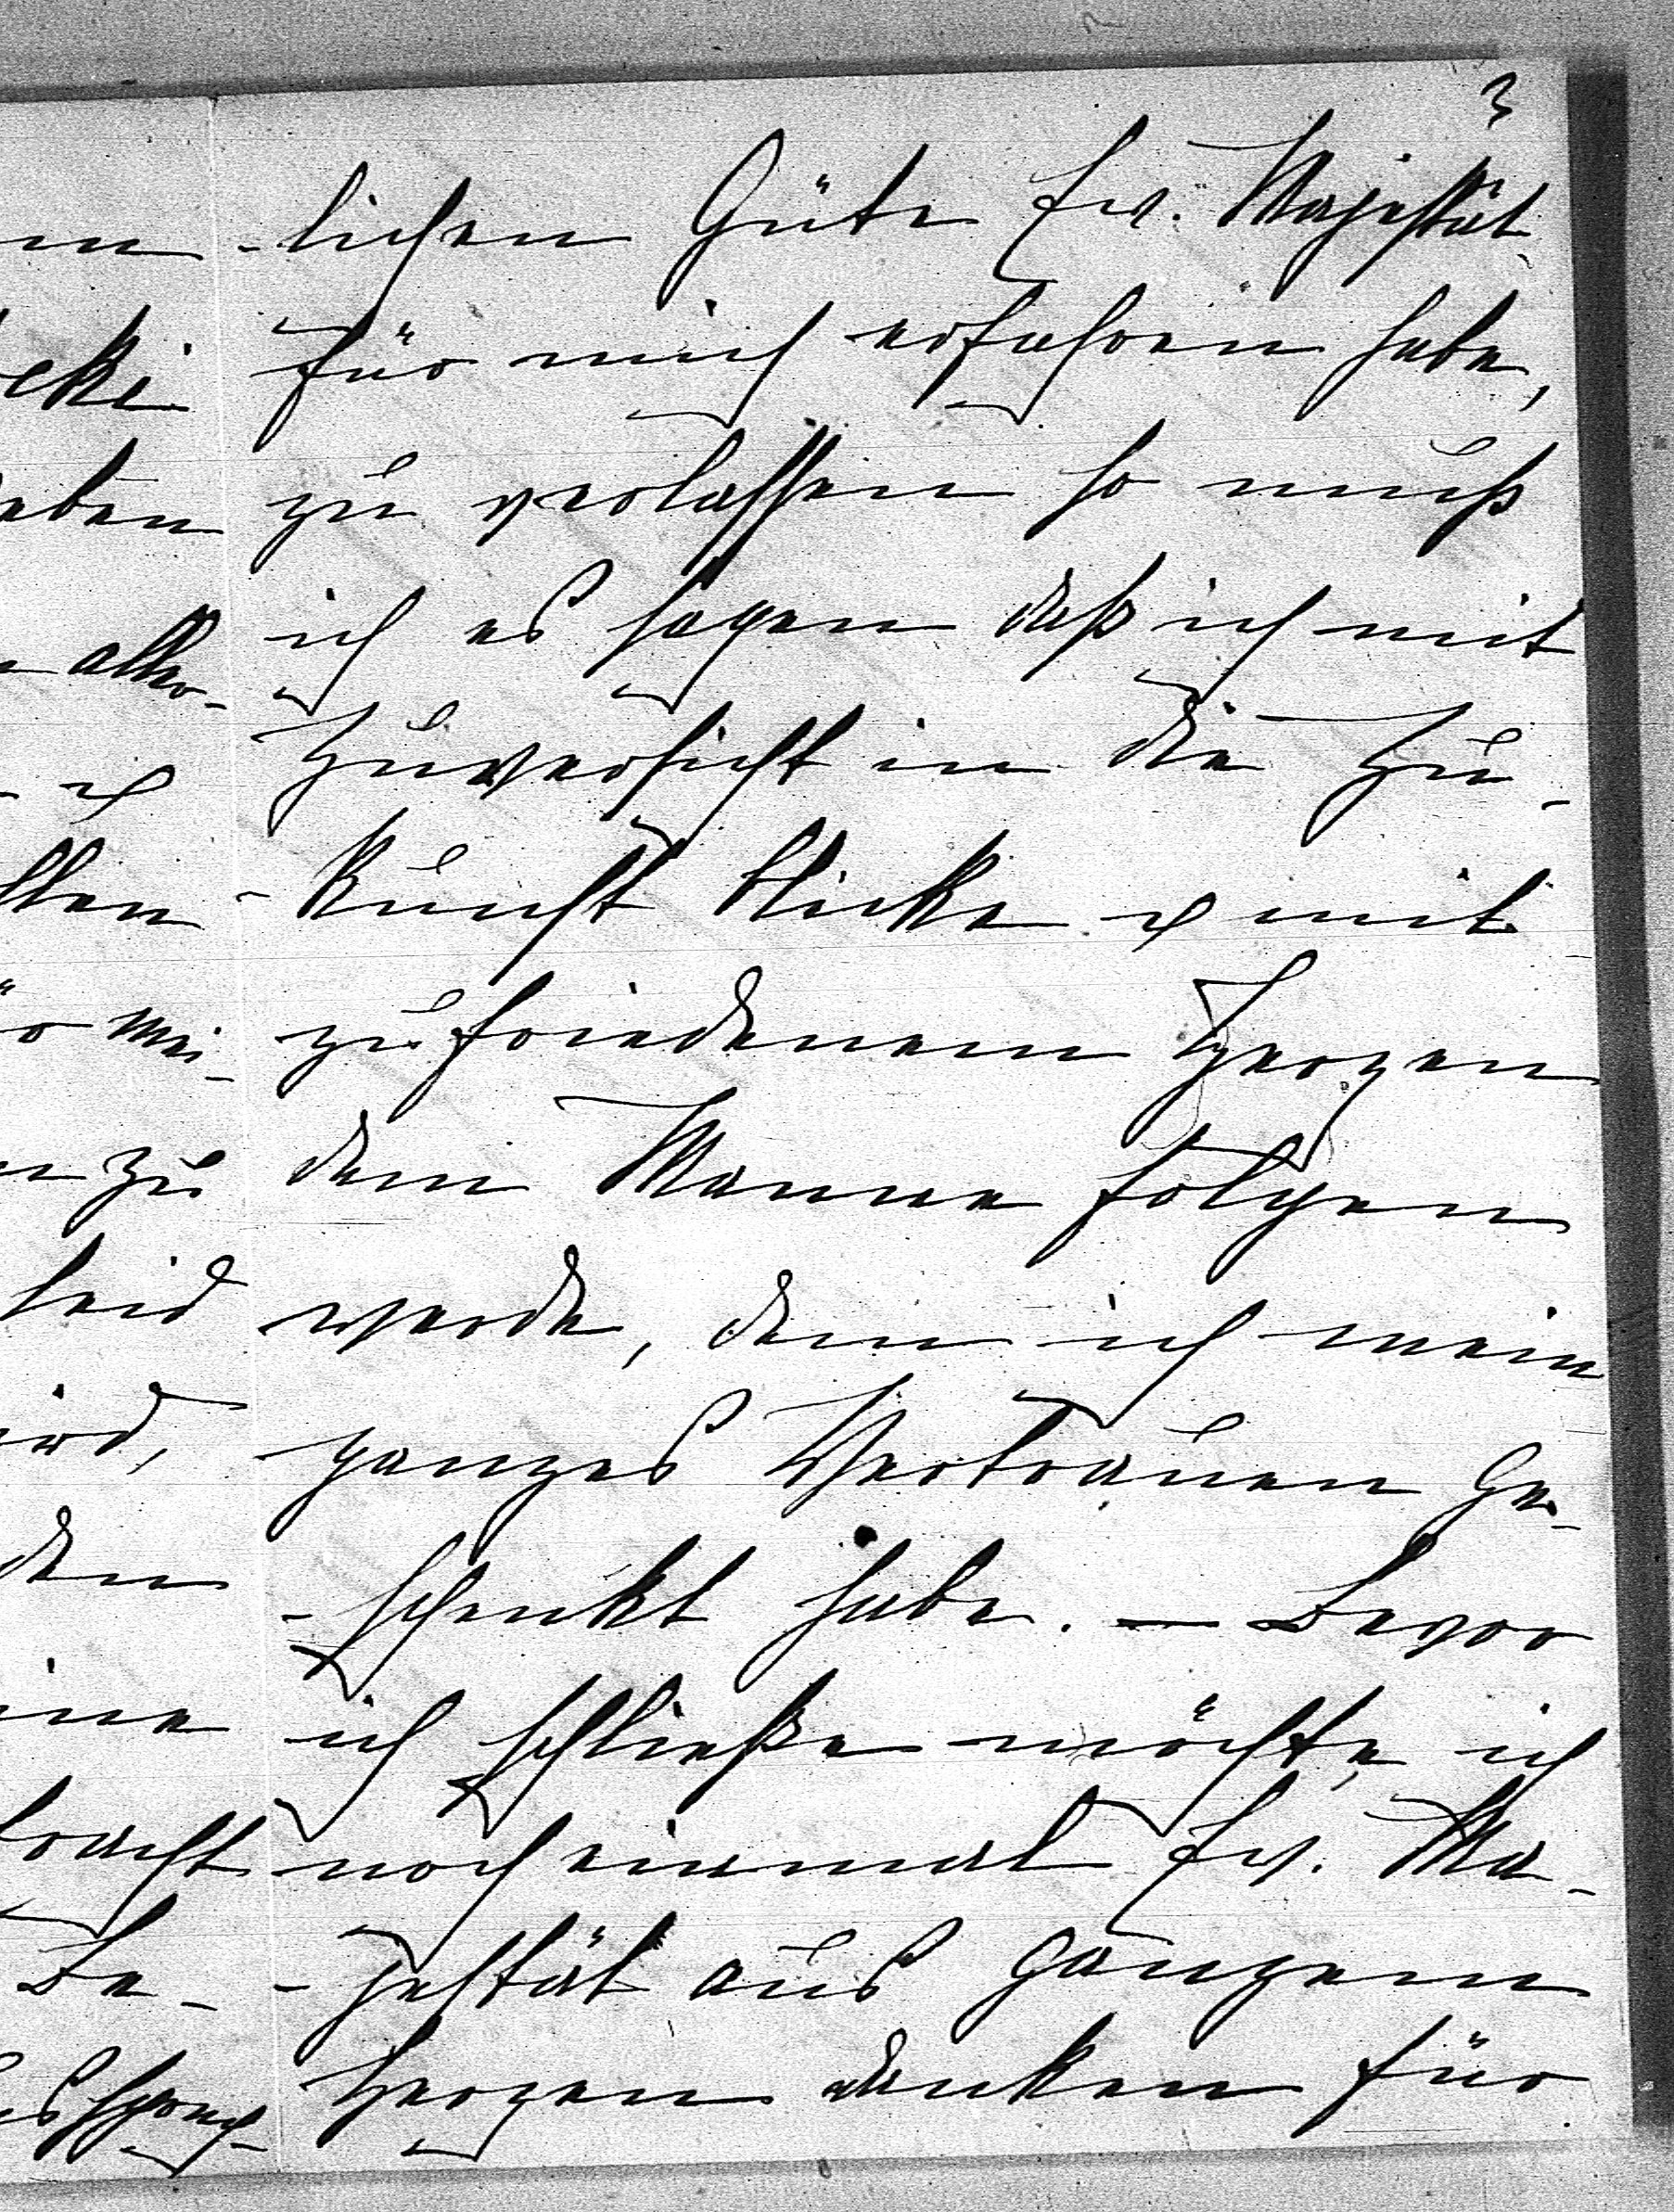 3
-lichen Güte Ew. Majestät
für mich erfahren habe,
zu verlassen so muß
ich es sagen daß ich mit
Zuversicht in die Zu-
-kunft blicke & mit
zufriedenem Herzen
dem Manne folgen
werde, dem ich mein
ganzes Vertrauen ge-
-schenkt habe. — Bevor
ich schließe möchte ich
noch einmal Ew. Ma-
-jestät aus ganzem
Herzen danken für